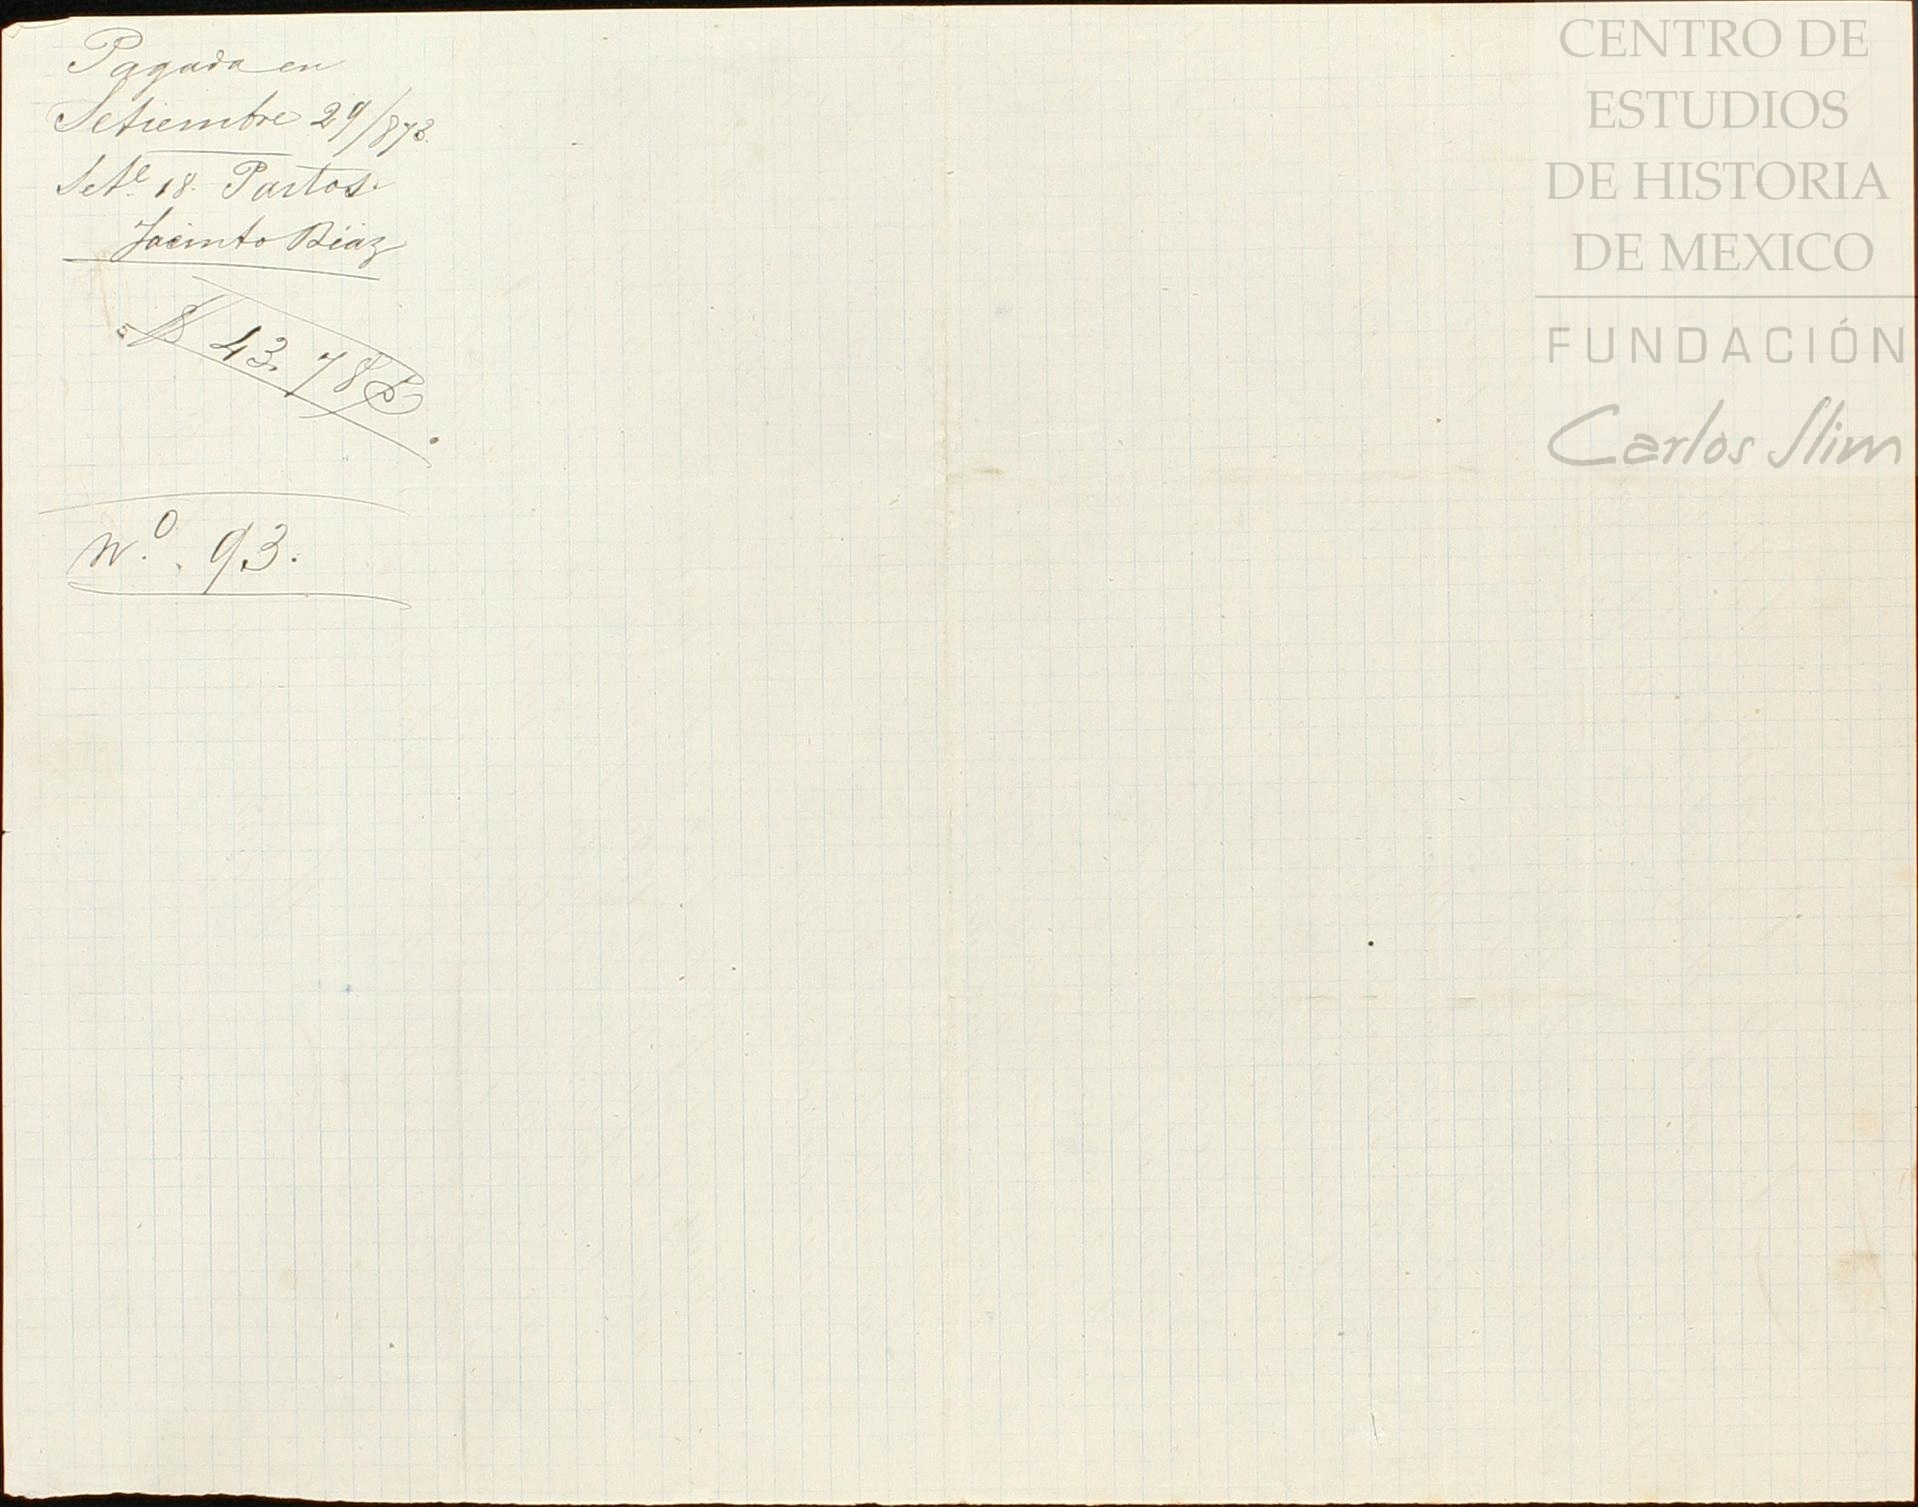 Pagada en
Setiembre 29/873.
Set.e 18. Partos.
Jacinto Diaz
$ 43.78
n.o 93.
CENTRO DE
ESTUDIOS
DE HISTORIA
DE MEXICO
FUNDACIÓN
Carlos Slim